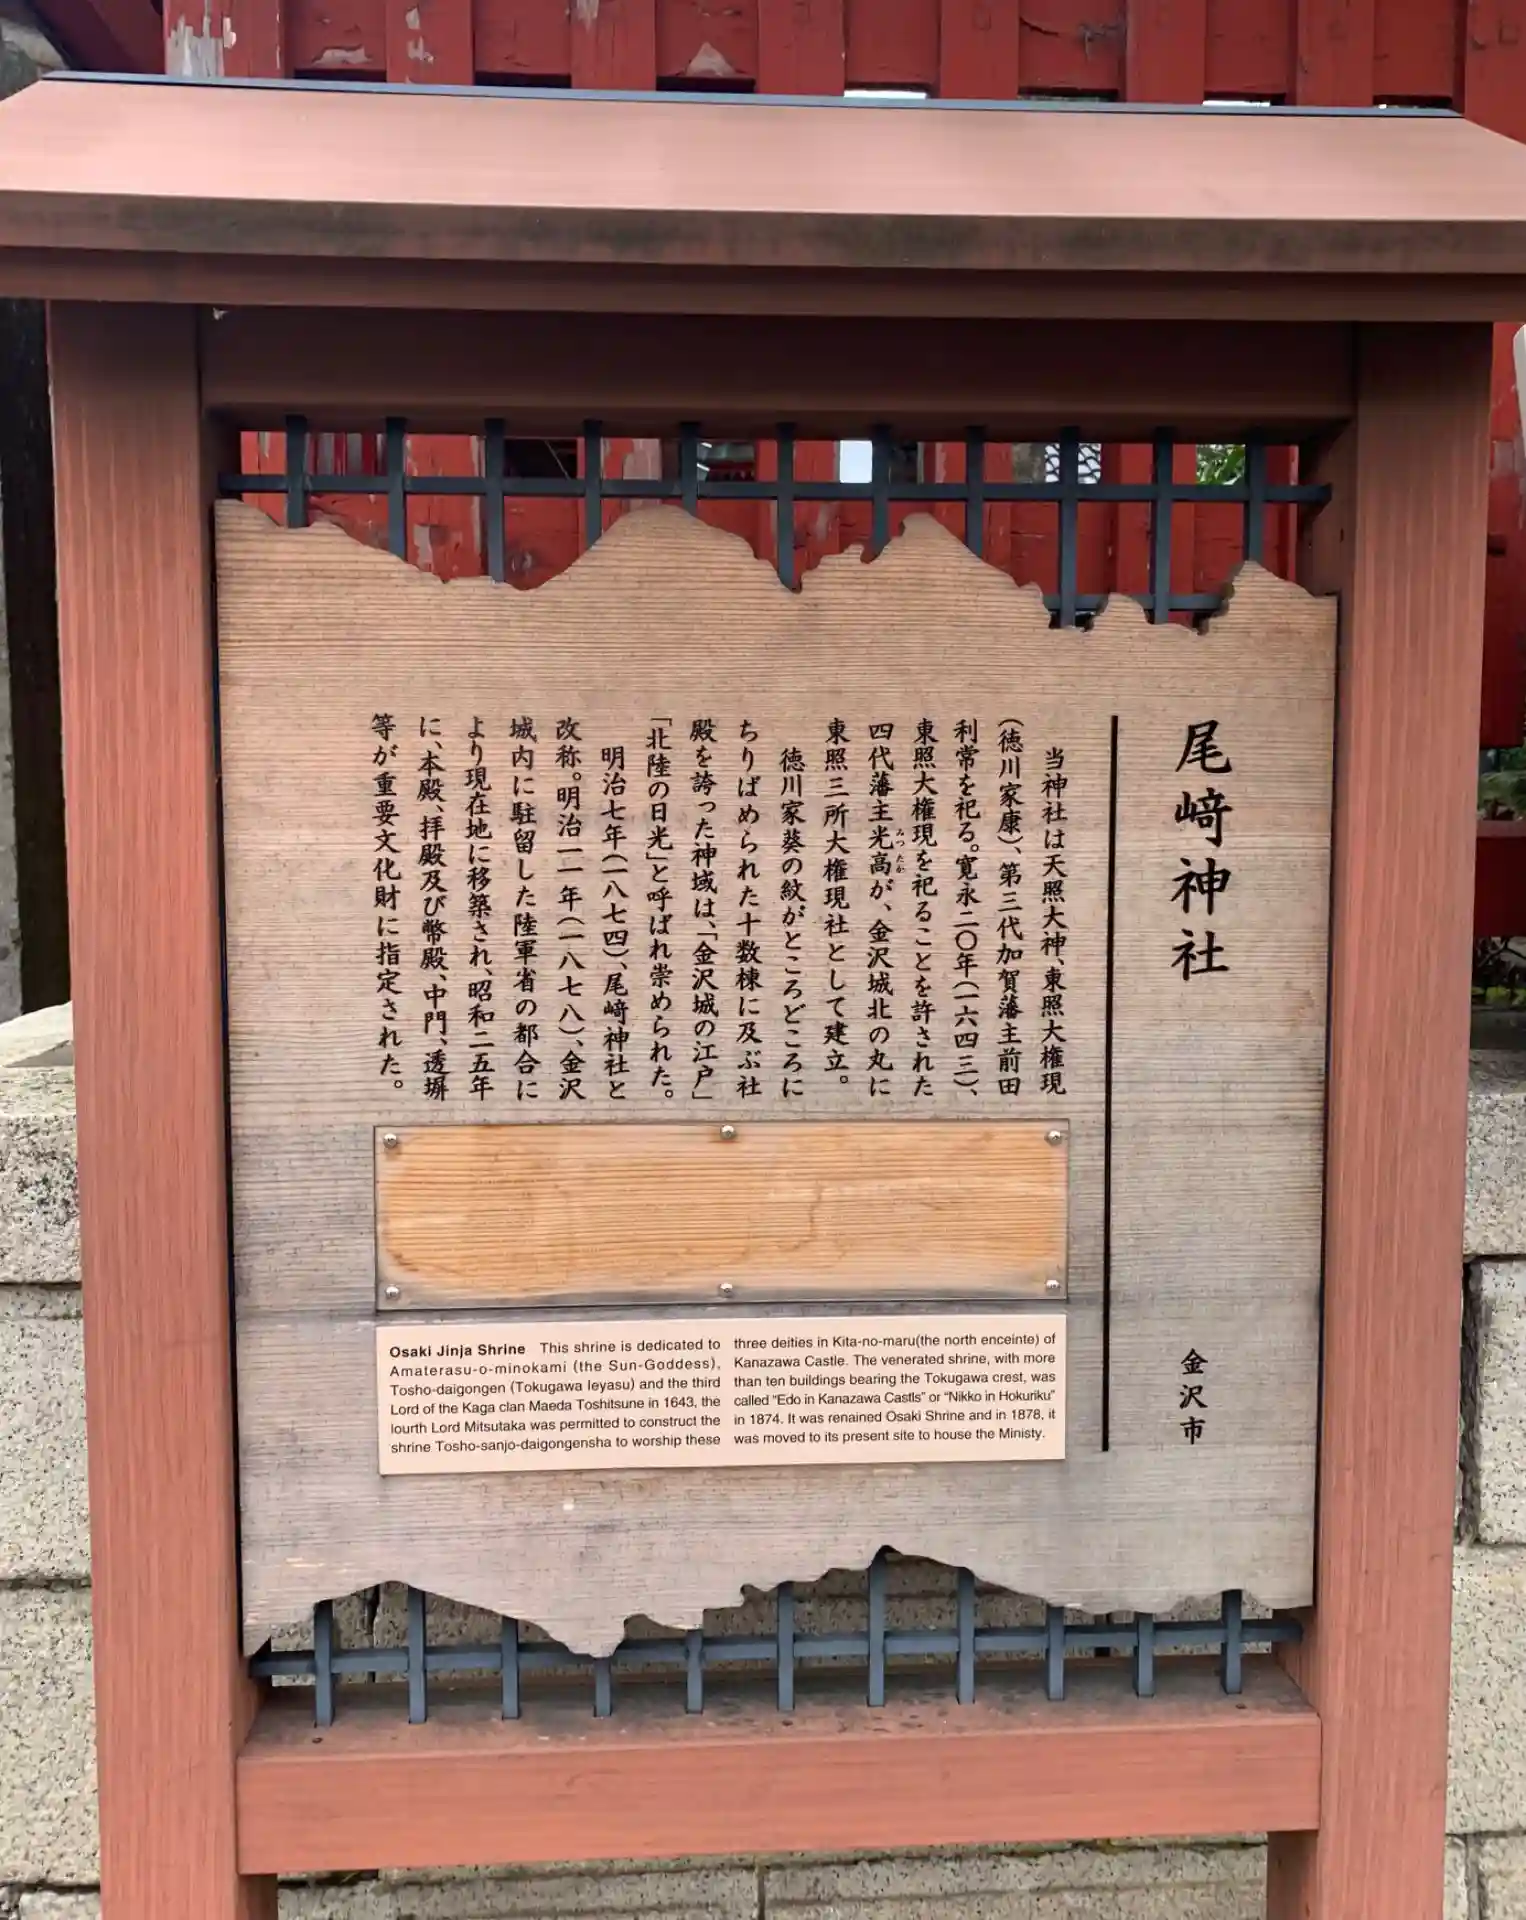 尾﨑神社
金沢市
当神社は天照大神、東照大権現
(徳川家康)、第三代加賀藩主前田
利常を祀る。寛永二〇年(一六四三)、
東照大権現を祀ることを許された
四代藩主光高が、金沢城北の丸に
みつたか
東照三所大権現社として建立。
徳川家葵の紋がところどころに
ちりばめられた十数棟に及ぶ社
殿を誇った神域は、「金沢城の江戸」
「北陸の日光」と呼ばれ崇められた。
明治七年(一八七四)、尾﨑神社と
改称。明治一一年(一八七八)、金沢
城内に駐留した陸軍省の都合に
より現在地に移築され、昭和二五年
に、本殿、拝殿及び幣殿、中門、透塀
等が重要文化財に指定された。
Osaki Jinja Shrine This shrine is dedicated to
Amaterasu-o-minokami (the Sun-Goddess),
Tosho-daigongen (Tokugawa Ieyasu) and the third
Lord of the Kaga clan Maeda Toshitsune in 1643, the
lourth Lord Mitsutaka was permitted to construct the
shrine Tosho-sanjo-daigongensha to worship these
three deities in Kita-no-maru(the north enceinte) of
Kanazawa Castle. The venerated shrine, with more
than ten buildings bearing the Tokugawa crest, was
called “Edo in Kanazawa Castls” or “Nikko in Hokuriku”
in 1874. It was renained Osaki Shrine and in 1878, it
was moved to its present site to house the Ministy.